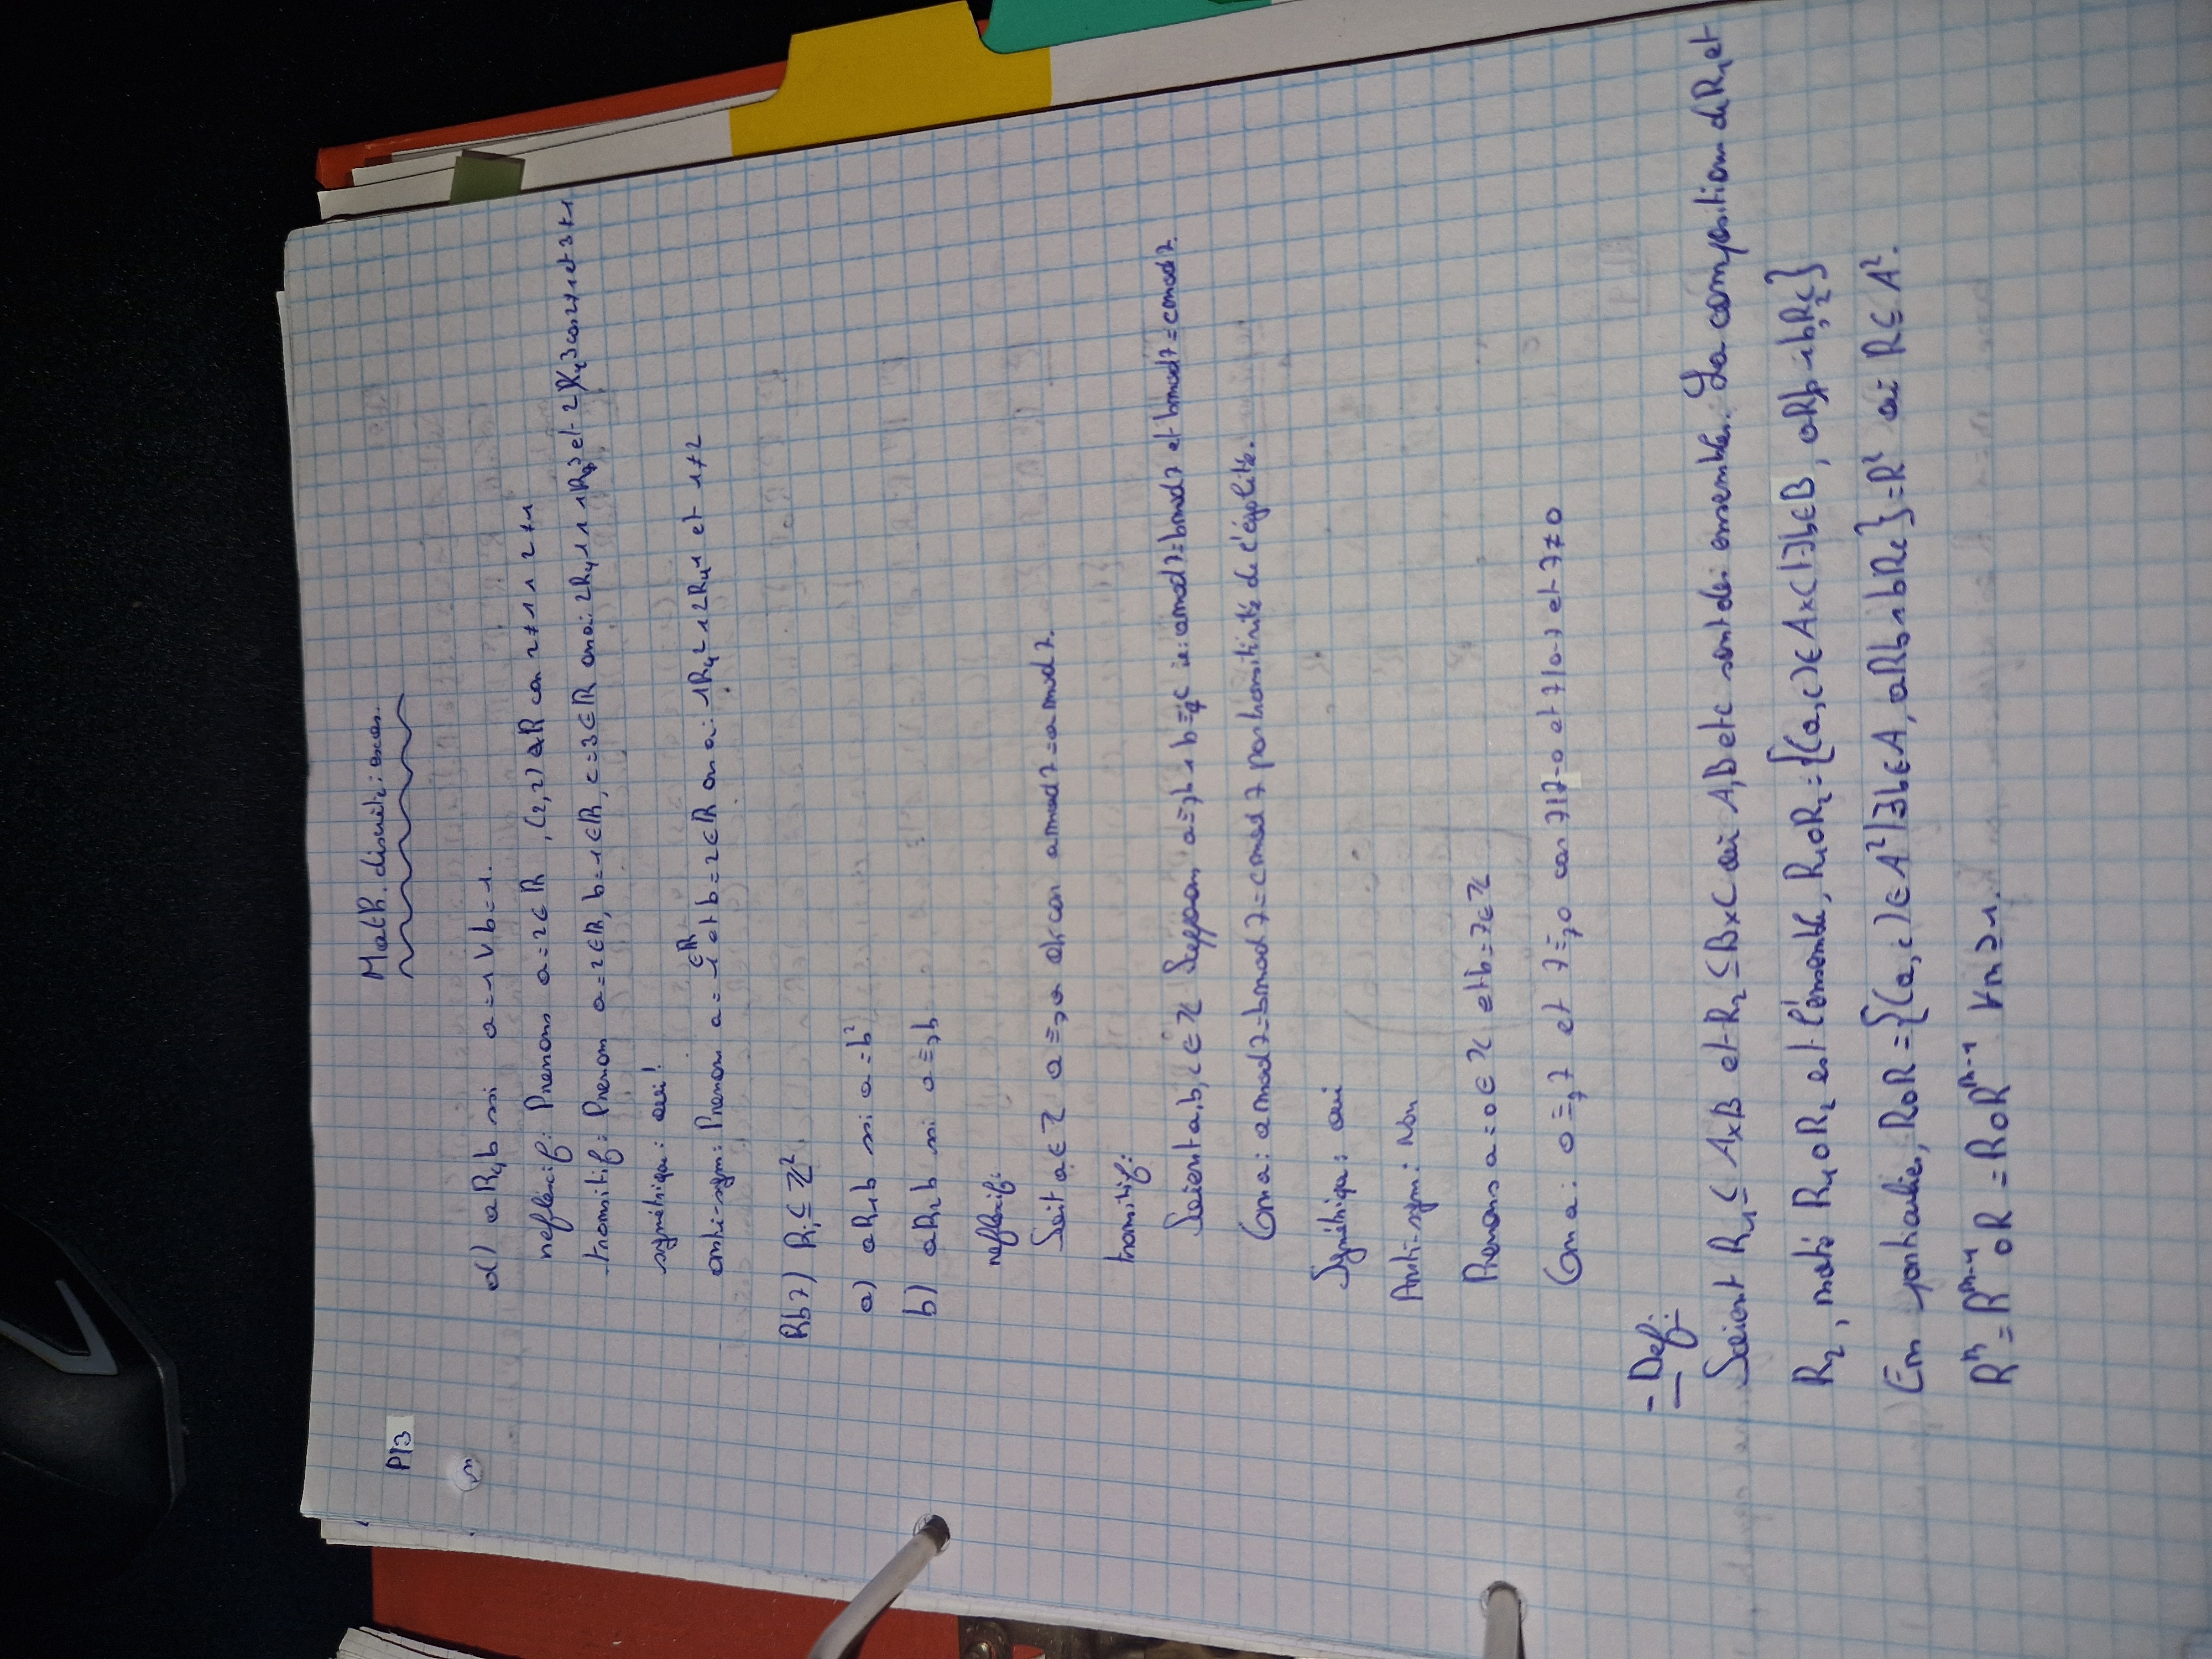 Math. discrète: exos.
P13
d) a R₄ b ssi a = 1 ∨ b = 1.
réflexif: Prenons a = 2 ∈ ℝ, (2,2) ∉ R car 2 ≠ 1 ∧ 2 ≠ 1
transitif: Prenons a = 2 ∈ ℝ, b = 1 ∈ ℝ, c = 3 ∈ ℝ on a: 2R₄1 ∧ 1R₄3 et 2R̸₄3 car 2 ≠ 1 et 3 ≠ 1
symétrique: oui!
anti-sym: Prenons a = 1 ∈ ℝ et b = 2 ∈ ℝ on a: 1R₄2 ∧ 2R₄1 et 1 ≠ 2
Rb7) Rᵢ ⊆ ℤ²
a) aR₁b ssi a = b²
b) aR₂b ssi a ≡₇ b
réflexif:
Soit a ∈ ℤ a ≡₇ a ok car a mod 7 = a mod 7.
transitif:
Soient a, b, c ∈ ℤ Supposons a ≡₇ b ∧ b ≡₇ c ie: a mod 7 = b mod 7 et b mod 7 = c mod 7.
On a: a mod 7 = b mod 7 = c mod 7 par transitivité de l'égalité.
Symétrique: oui
Anti-sym: Non
Prenons a = 0 ∈ ℤ et b = 7 ∈ ℤ
On a: 0 ≡₇ 7 et 7 ≡₇ 0 car 7|7-0 et 7|0-7 et 7 ≠ 0
- Def:
Soient R₁ ⊆ A×B et R₂ ⊆ B×C où A, B et C sont des ensembles. La composition de R₁ et
R₂, noté R₁∘R₂ est l'ensemble, R₁∘R₂ = {(a,c) ∈ A×C | ∃b ∈ B, aR₁b ∧ bR₂c}
En particulier, R∘R = {(a,c) ∈ A² | ∃b ∈ A, aRb ∧ bRc} = R² où R ⊆ A².
Rⁿ = Rⁿ⁻¹∘R = R∘Rⁿ⁻¹ ∀n ≥ 1.